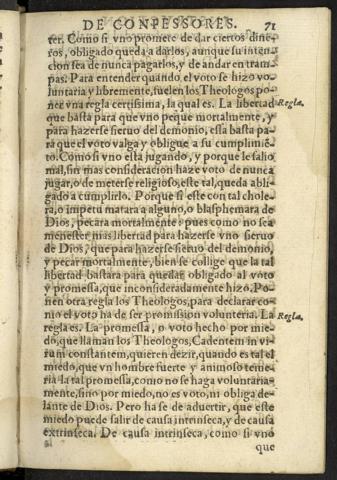 DE CONFESSORES. 71
ter. Como si vno promete de dar ciertos dine-
ros, obligado queda a darlos, aunque su inten-
cion sea de nunca pagarlos, y de andar en tram-
pas. Para entender quando el voto se hizo vo-
luntaria y libremente, suelen los Theologos po-
ner vna regla certissima, la qual es. La libertad Regla.
que basta para que vno peque mortalmente, y
para hazerse sieruo del demonio, essa basta pa-
ra que el voto valga y obligue a su cumplimiē-
to. Como si vno està jugando, y porque le salio
mal, sin mas consideracion haze voto de nunca
jugar, o de meterse religioso, este tal, queda abli-
gado a cumplirlo. Porque si este con tal chole-
ra, o impetu matara a alguno, o blasphemara de
Dios, pecara mortalmente: pues como no sea
menester mas libertad para hazerse vno sieruo
de Dios, que para hazerse sieruo del demonio,
y pecar mortalmente, bien se collige que la tal
libertad bastara para quedar obligado al voto
y promessa, que inconsideradamente hizo. Po-
nen otra regla los Theologos, para declarar co-
mo el voto ha de ser promission volunteria. La Regla.
regla es. La promessa, o voto hecho por mie-
do, que llaman los Theologos, Cadentem in vi-
rum constantem, quieren dezir, quando es tal el
miedo, que vn hombre fuerte y animoso teme-
ria la tal promessa, como no se haga voluntaria-
mente, sino por miedo, no es voto, ni obliga de-
lante de Dios. Pero ha se de aduertir, que este
miedo puede salir de causa intrinseca, y de causa
extrinseca. De causa intrinseca, como si vno
que